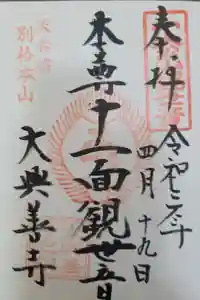 奉拝
令和 年
四月十九日
本尊十一面観世音
大興善寺
天台宗
別格本山